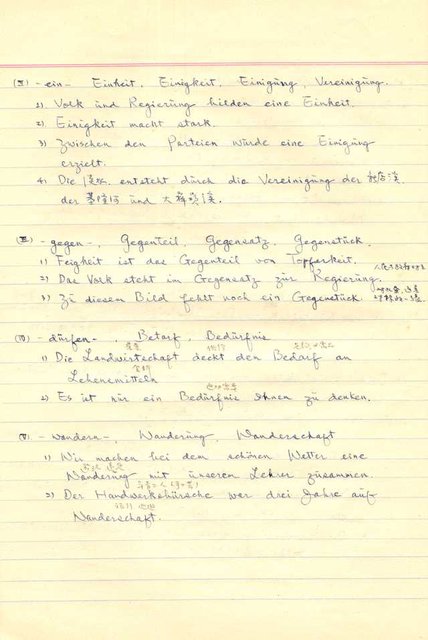 (II) -ein- Einheit, Einigkeit, Einigung, Vereinigung.
1) Volk und Regierung bilden eine Einheit.
2) Einigkeit macht stark.
3) Zwischen den Parteien wurde eine Einigung
erzielt.
4) Die 淡水 entsteht durch die Vereinigung der 新店溪,
der 基隆河 und 大嵙崁溪.
(III) -gegen-, Gegenteil, Gegensatz, Gegenstück.
1) Feigheit ist das Gegenteil von Tapferkeit.
2) Das Volk steht im Gegensatz zur Regierung.
3) Zu diesem Bild fehlt noch ein Gegenstück.
(IV) -dürfen-, Betarf, Bedürfnis
1) Die Landwirtschaft deckt den Bedarf an
Lebensmitteln
2) Es ist mir ein Bedürfnis Ihnen zu denken.
(V) -wandern-, Wanderung, Wanderschaft
1) Wir machen bei dem schönen Wetter eine
Wanderung mit unserem Lehrer zusammen.
2) Der Handwerksbürsche war drei Jahre auf
Wanderschaft.